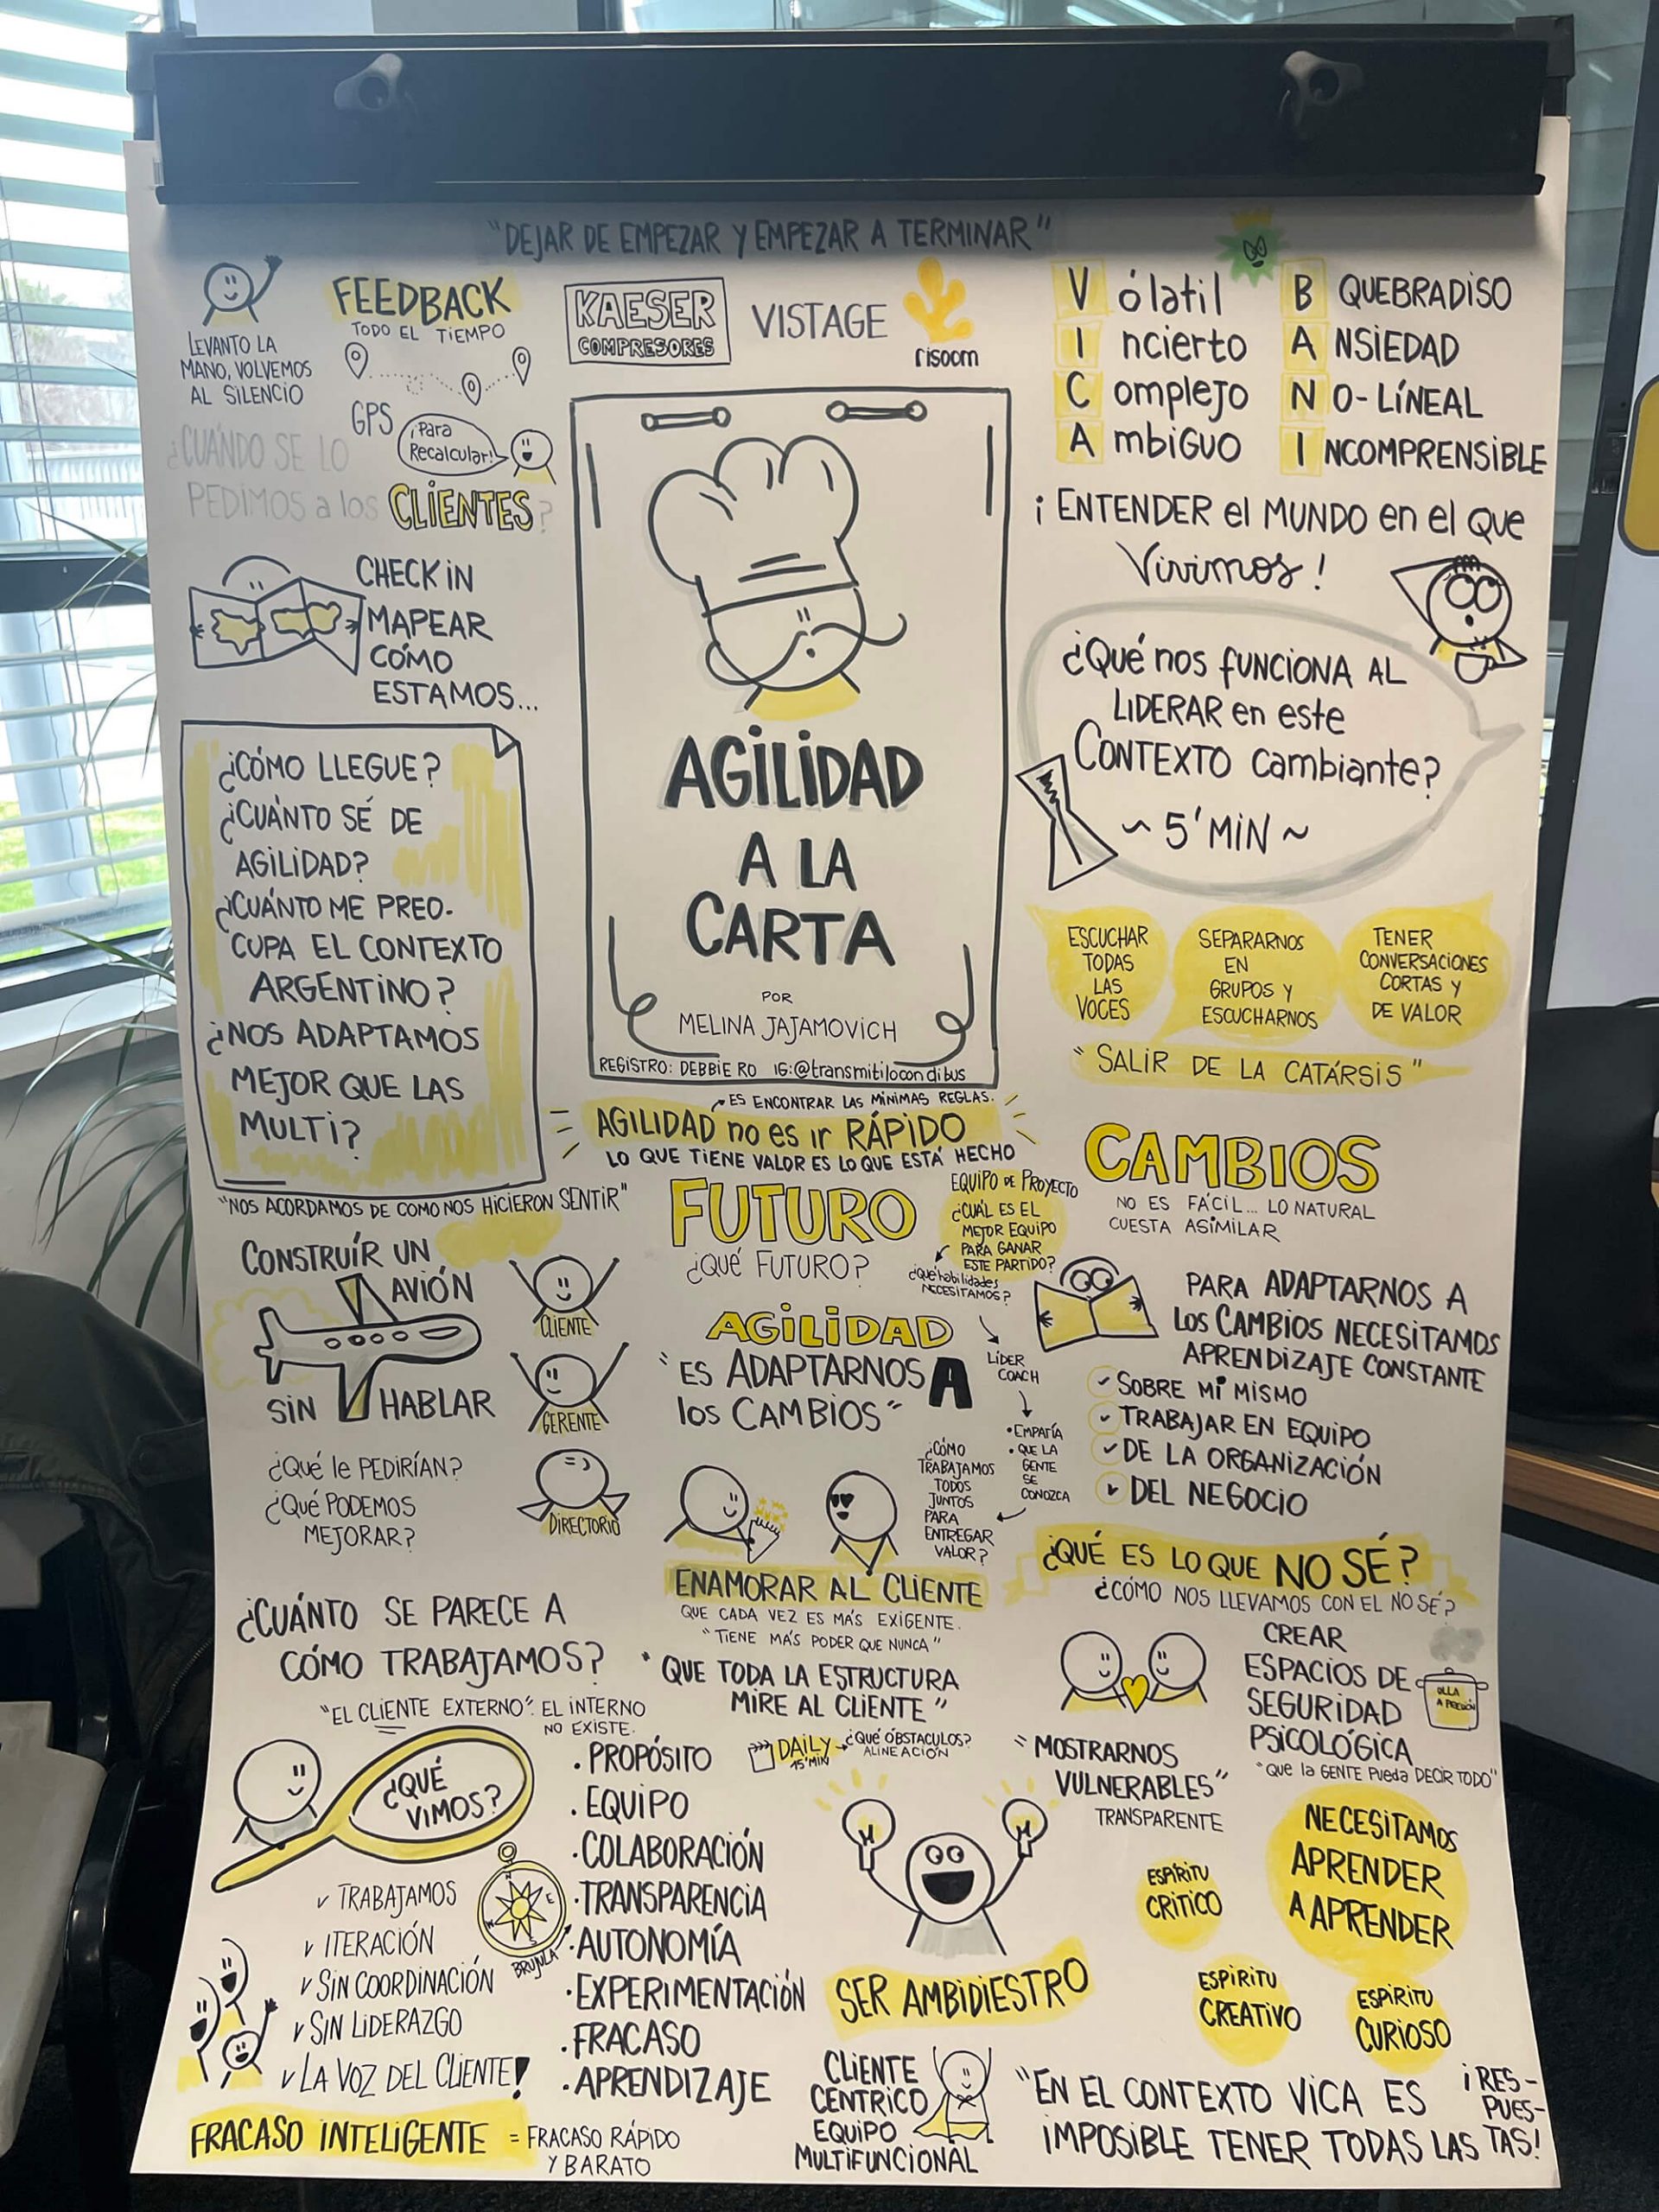 "DEJAR DE EMPEZAR Y EMPEZAR A TERMINAR"
LEVANTO LA
MANO, VOLVEMOS
AL SILENCIO
FEEDBACK
TODO EL TIEMPO
GPS
¡Para
Recalcular!
¿CUÁNDO SE LO
PEDIMOS a los CLIENTES?
CHECK IN
MAPEAR
CÓMO
ESTAMOS...
¿CÓMO LLEGUE?
¿CUÁNTO SÉ DE
AGILIDAD?
¿CUÁNTO ME PREO-
CUPA EL CONTEXTO
ARGENTINO?
¿NOS ADAPTAMOS
MEJOR QUE LAS
MULTI?
"NOS ACORDAMOS DE COMO NOS HICIERON SENTIR"
KAESER
COMPRESORES
VISTAGE
risoom
AGILIDAD
A LA
CARTA
POR
MELINA JAJAMOVICH
REGISTRO: DEBBIE RO IG:@transmitilocondibus
VÓlatil
Incierto
Complejo
AmbiGUO
B QUEBRADISO
ANSIEDAD
NO-LÍNEAL
INCOMPRENSIBLE
¡ENTENDER el MUNDO en el que
Vivimos!
¿Qué nos FUNCIONA AL
LIDERAR en este
CONTEXTO Cambiante?
~ 5' MIN ~
ESCUCHAR
TODAS
LAS
VOCES
SEPARARNOS
EN
GRUPOS Y
ESCUCHARNOS
TENER
CONVERSACIONES
CORTAS Y
DE VALOR
"SALIR DE LA CATÁRSIS"
ES ENCONTRAR LAS MÍNIMAS REGLAS.
AGILIDAD no es ir RÁPIDO
LO QUE TIENE VALOR ES LO QUE ESTÁ HECHO
FUTURO
¿Qué FUTURO?
EQUIPO DE PROYECTO
¿CUÁL ES EL
MEJOR EQUIPO
PARA GANAR
ESTE PARTIDO?
¿Qué habilidades
NECESITAMOS?
LÍDER
COACH
• EMPATÍA
• QUE LA
GENTE
SE
CONOZCA
¿CÓMO
TRABAJAMOS
TODOS
JUNTOS
PARA
ENTREGAR
VALOR?
AGILIDAD
"ES ADAPTARNOS A
los CAMBIOS"
ENAMORAR AL CLIENTE
QUE CADA VEZ ES MÁS EXIGENTE.
"TIENE MÁS PODER QUE NUNCA"
"QUE TODA LA ESTRUCTURA
MIRE AL CLIENTE"
DAILY
15'MIN
¿Qué OBSTACULOS?
ALINEACIÓN
CAMBIOS
NO ES FÁCIL... LO NATURAL
CUESTA ASIMILAR
PARA ADAPTARNOS A
LOS CAMBIOS NECESITAMOS
APRENDIZAJE CONSTANTE
✓ SOBRE MI MISMO
✓ TRABAJAR EN EQUIPO
✓ DE LA ORGANIZACIÓN
✓ DEL NEGOCIO
¿QUÉ ES LO QUE NO SÉ?
¿CÓMO NOS LLEVAMOS CON EL NO SÉ?
CREAR
ESPACIOS DE
SEGURIDAD
PSICOLÓGICA
OLLA
A PRESIÓN
"Que la GENTE Pueda DECIR TODO"
"MOSTRARNOS
VULNERABLES"
TRANSPARENTE
NECESITAMOS
APRENDER
A APRENDER
ESPÍRITU
CRÍTICO
ESPIRITU
CREATIVO
ESPIRITU
CURIOSO
CONSTRUÍR UN
AVIÓN
SIN HABLAR
CLIENTE
GERENTE
DIRECTORIO
¿Qué le PEDIRÍAN?
¿Qué PODEMOS
MEJORAR?
¿CUÁNTO SE PARECE A
CÓMO TRABAJAMOS?
"EL CLIENTE EXTERNO". EL INTERNO
NO EXISTE.
¿QUÉ
VIMOS?
✓ TRABAJAMOS
✓ ITERACIÓN
✓ SIN COORDINACIÓN
✓ SIN LIDERAZGO
✓ LA VOZ DEL CLIENTE!
N
E
S
W
BRUJULA
• PROPÓSITO
• EQUIPO
• COLABORACIÓN
• TRANSPARENCIA
• AUTONOMÍA
• EXPERIMENTACIÓN
• FRACASO
• APRENDIZAJE
FRACASO INTELIGENTE = FRACASO RÁPIDO
Y BARATO
SER AMBIDIESTRO
CLIENTE
CENTRICO
EQUIPO
MULTIFUNCIONAL
"EN EL CONTEXTO VICA ES
IMPOSIBLE TENER TODAS LAS
¡RES-
PUES-
TAS!